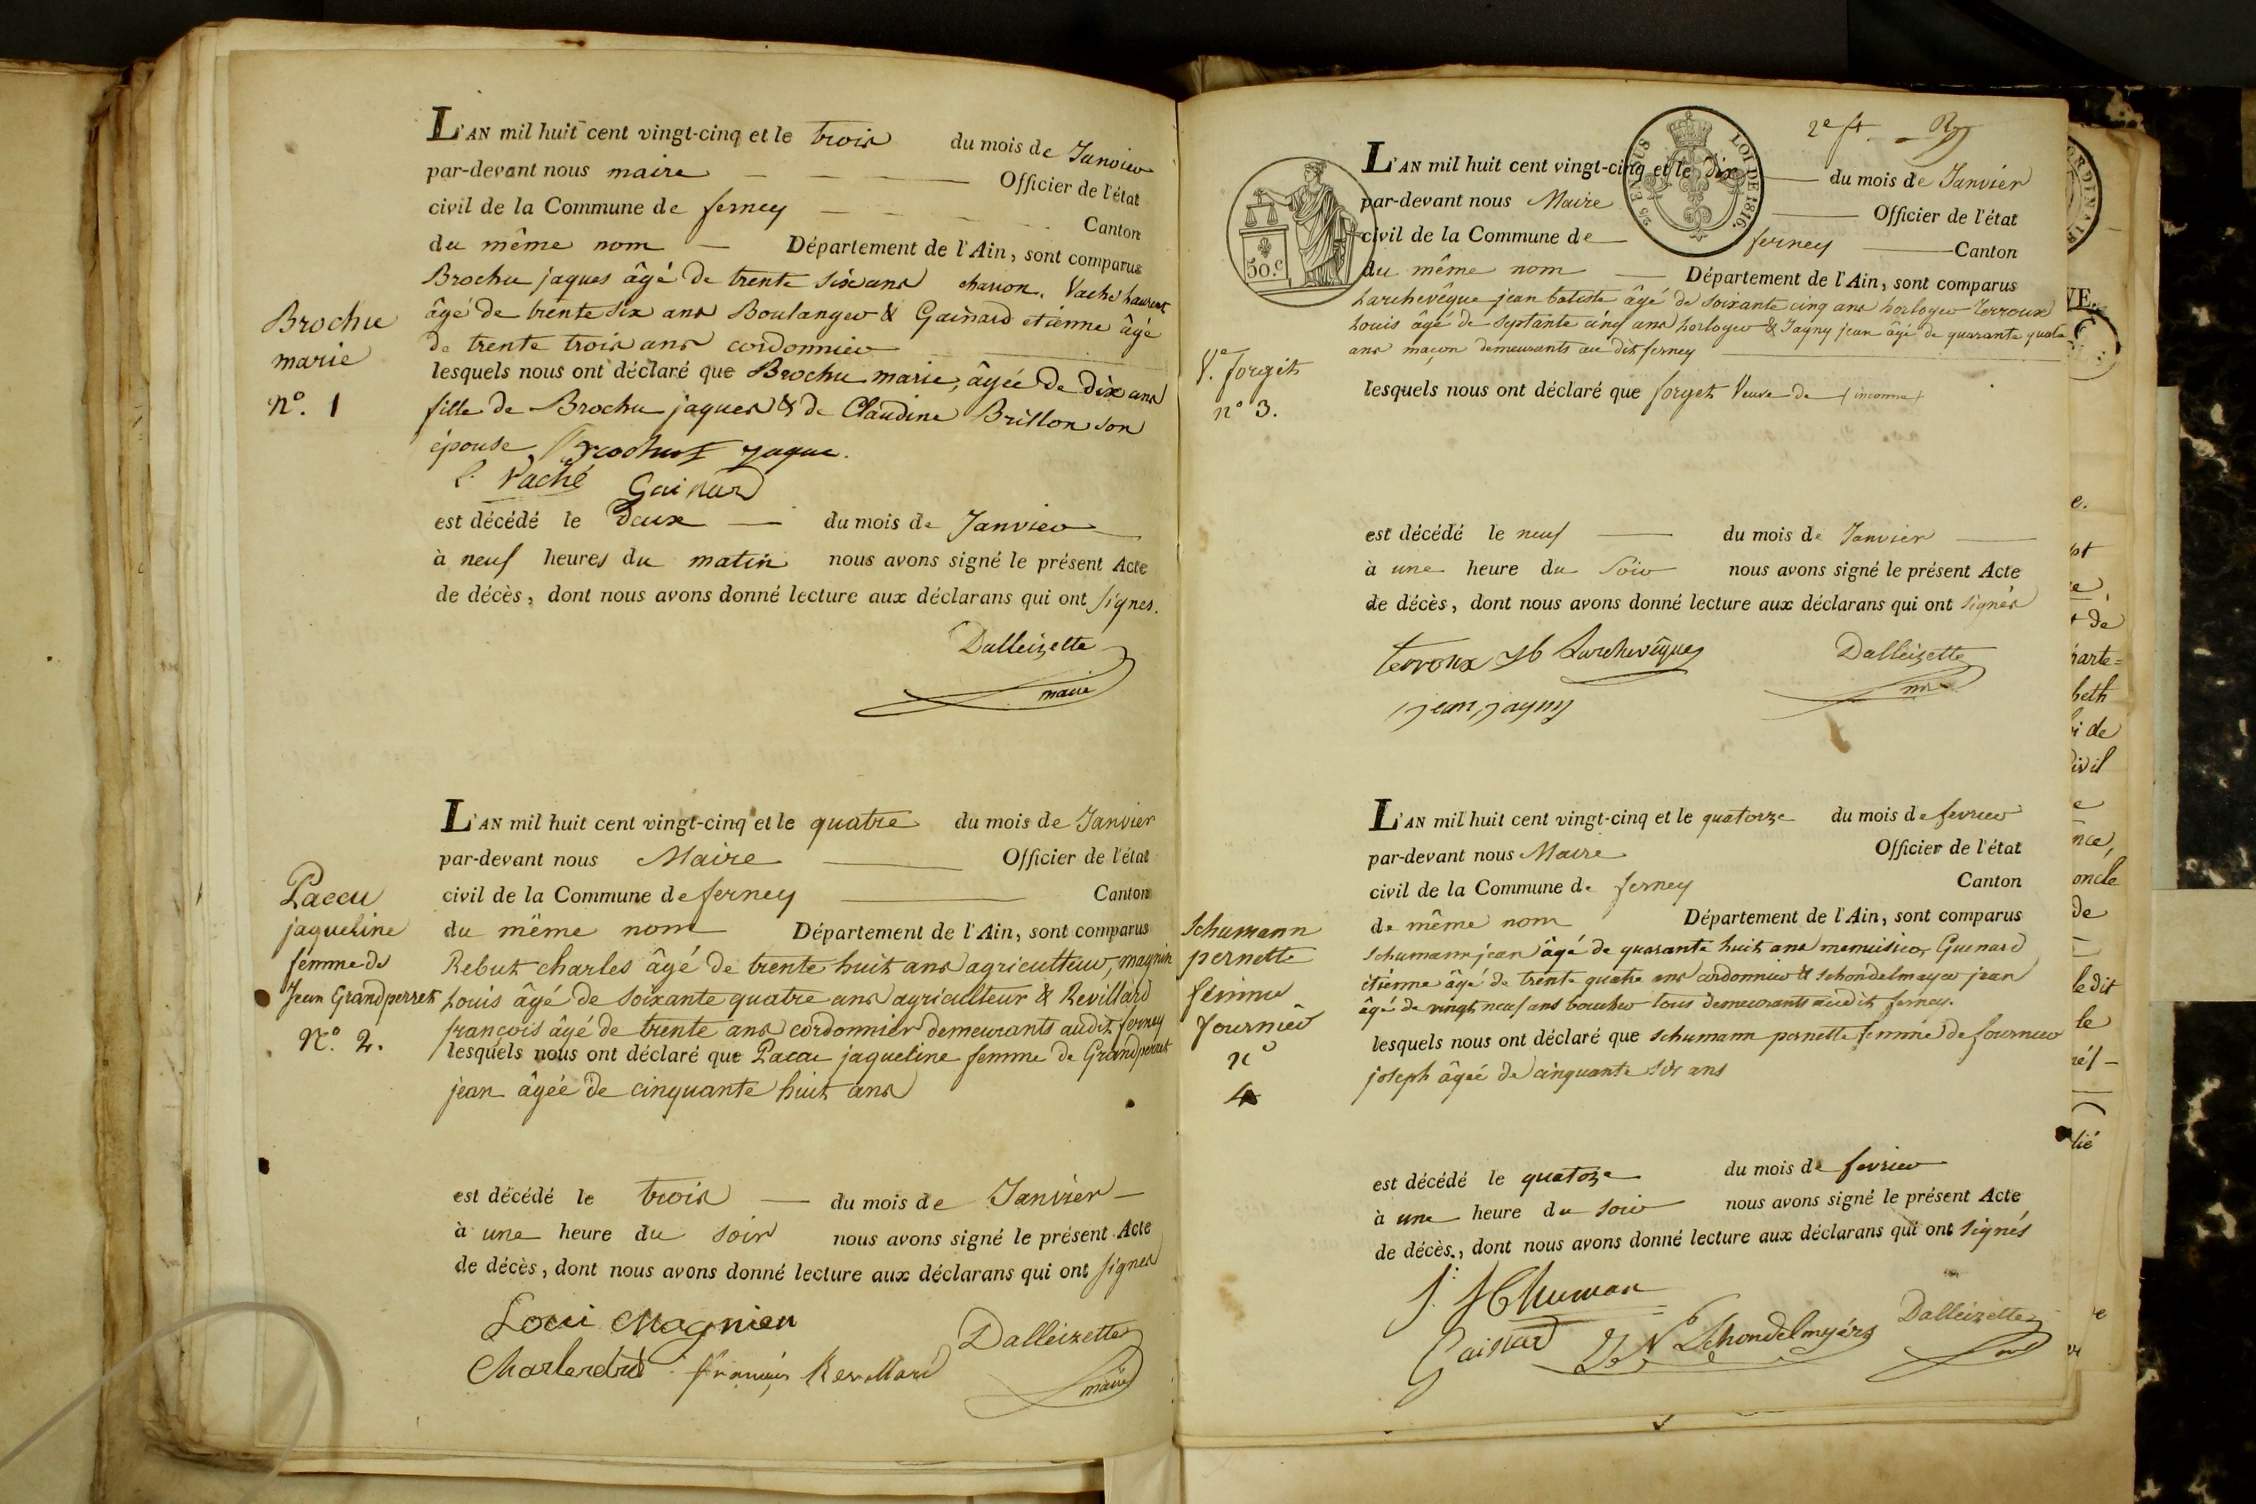 L'AN mil huit cent vingt-cinq et le trois du mois de Janvier
par-devant nous maire Officier de l'état
civil de la Commune de ferney Canton
du même nom Département de l'Ain, sont comparus
Brochu jaques âgé de trente six ans charron. Vaché Laurent
âgé de trente six ans Boulanger & Gainard etienne âgé
de trente trois ans cordonnier
Brochu
marie
n°. 1
lesquels nous ont déclaré que Brochu marie, âgée de dix ans
fille de Brochu jaques & de Claudine Brillon son
épouse Brochut jaque.
L. Vaché Gainard
est décédé le Deux du mois de Janvier
à neuf heures du matin nous avons signé le présent Acte
de décès, dont nous avons donné lecture aux déclarans qui ont signés.
Dalleizette
maire
L'AN mil huit cent vingt-cinq et le quatre du mois de Janvier
par-devant nous Maire Officier de l'état
civil de la Commune de ferney Canton
du même nom Département de l'Ain, sont comparus
Rebut charles âgé de trente huit ans agriculteur, magnin
Louis âgé de soixante quatre ans agriculteur & Revillard
françois âgé de trente ans cordonnier demeurants audit ferney
Paccu
jaqueline
femme de
Jean Grandperret
N°. 2.
lesquels nous ont déclaré que Paccu jaqueline femme de Grandperret
jean âgée de cinquante huit ans
est décédé le trois du mois de Janvier
à une heure du soir nous avons signé le présent Acte
de décès, dont nous avons donné lecture aux déclarans qui ont signés
Loui Magnien Dalleizette
françois Revillard maire
2e ft.
25 EN SUS LOI DE 1816.
50.c
L'AN mil huit cent vingt-cinq et le dix du mois de Janvier
par-devant nous Maire Officier de l'état
civil de la Commune de ferney Canton
du même nom Département de l'Ain, sont comparus
Larchevêque jean batiste âgé de soixante cinq ans horloger Terroux
Louis âgé de septante cinq ans horloger & Jagny jean âgé de quarante quatre
ans maçon demeurants au dit ferney
Ve. forget
n° 3.
lesquels nous ont déclaré que forget Veuve de (inconnu)
est décédé le neuf du mois de Janvier
à une heure du soir nous avons signé le présent Acte
de décès, dont nous avons donné lecture aux déclarans qui ont signés
Terroux Jb Larchevêque Dalleizette
jean jagny mr
L'AN mil huit cent vingt-cinq et le quatorze du mois de fevrier
par-devant nous Maire Officier de l'état
civil de la Commune de ferney Canton
de même nom Département de l'Ain, sont comparus
Schumann jean âgé de quarante huit ans menuisier, Guinard
étienne âgé de trente quatre ans cordonnier & Schondelmayer jean
âgé de vingt neuf ans boucher tous demeurants audit ferney.
Schumann
pernette
femme
fournier
n°
4
lesquels nous ont déclaré que schumann pernette femme de fournier
joseph âgée de cinquante six ans
est décédé le quatoze du mois de fevrier
à une heure du soir nous avons signé le présent Acte
de décès, dont nous avons donné lecture aux déclarans qui ont signés
J. SChuman
Gainard Schondelmyérs Dalleizette